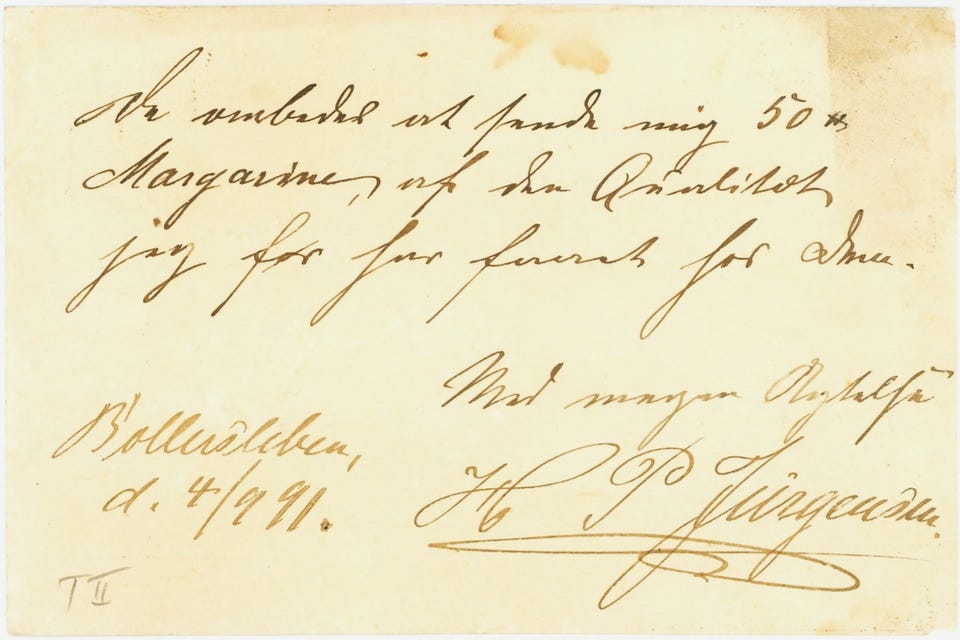 De ombedes at sende mig 50 ℔
Margarine, af den Qualitæt
jeg før har faaet hos Dem.
Med megen Agtelse
Bollersleben,
d. 4/9 91.
H P Jürgensen.
T II